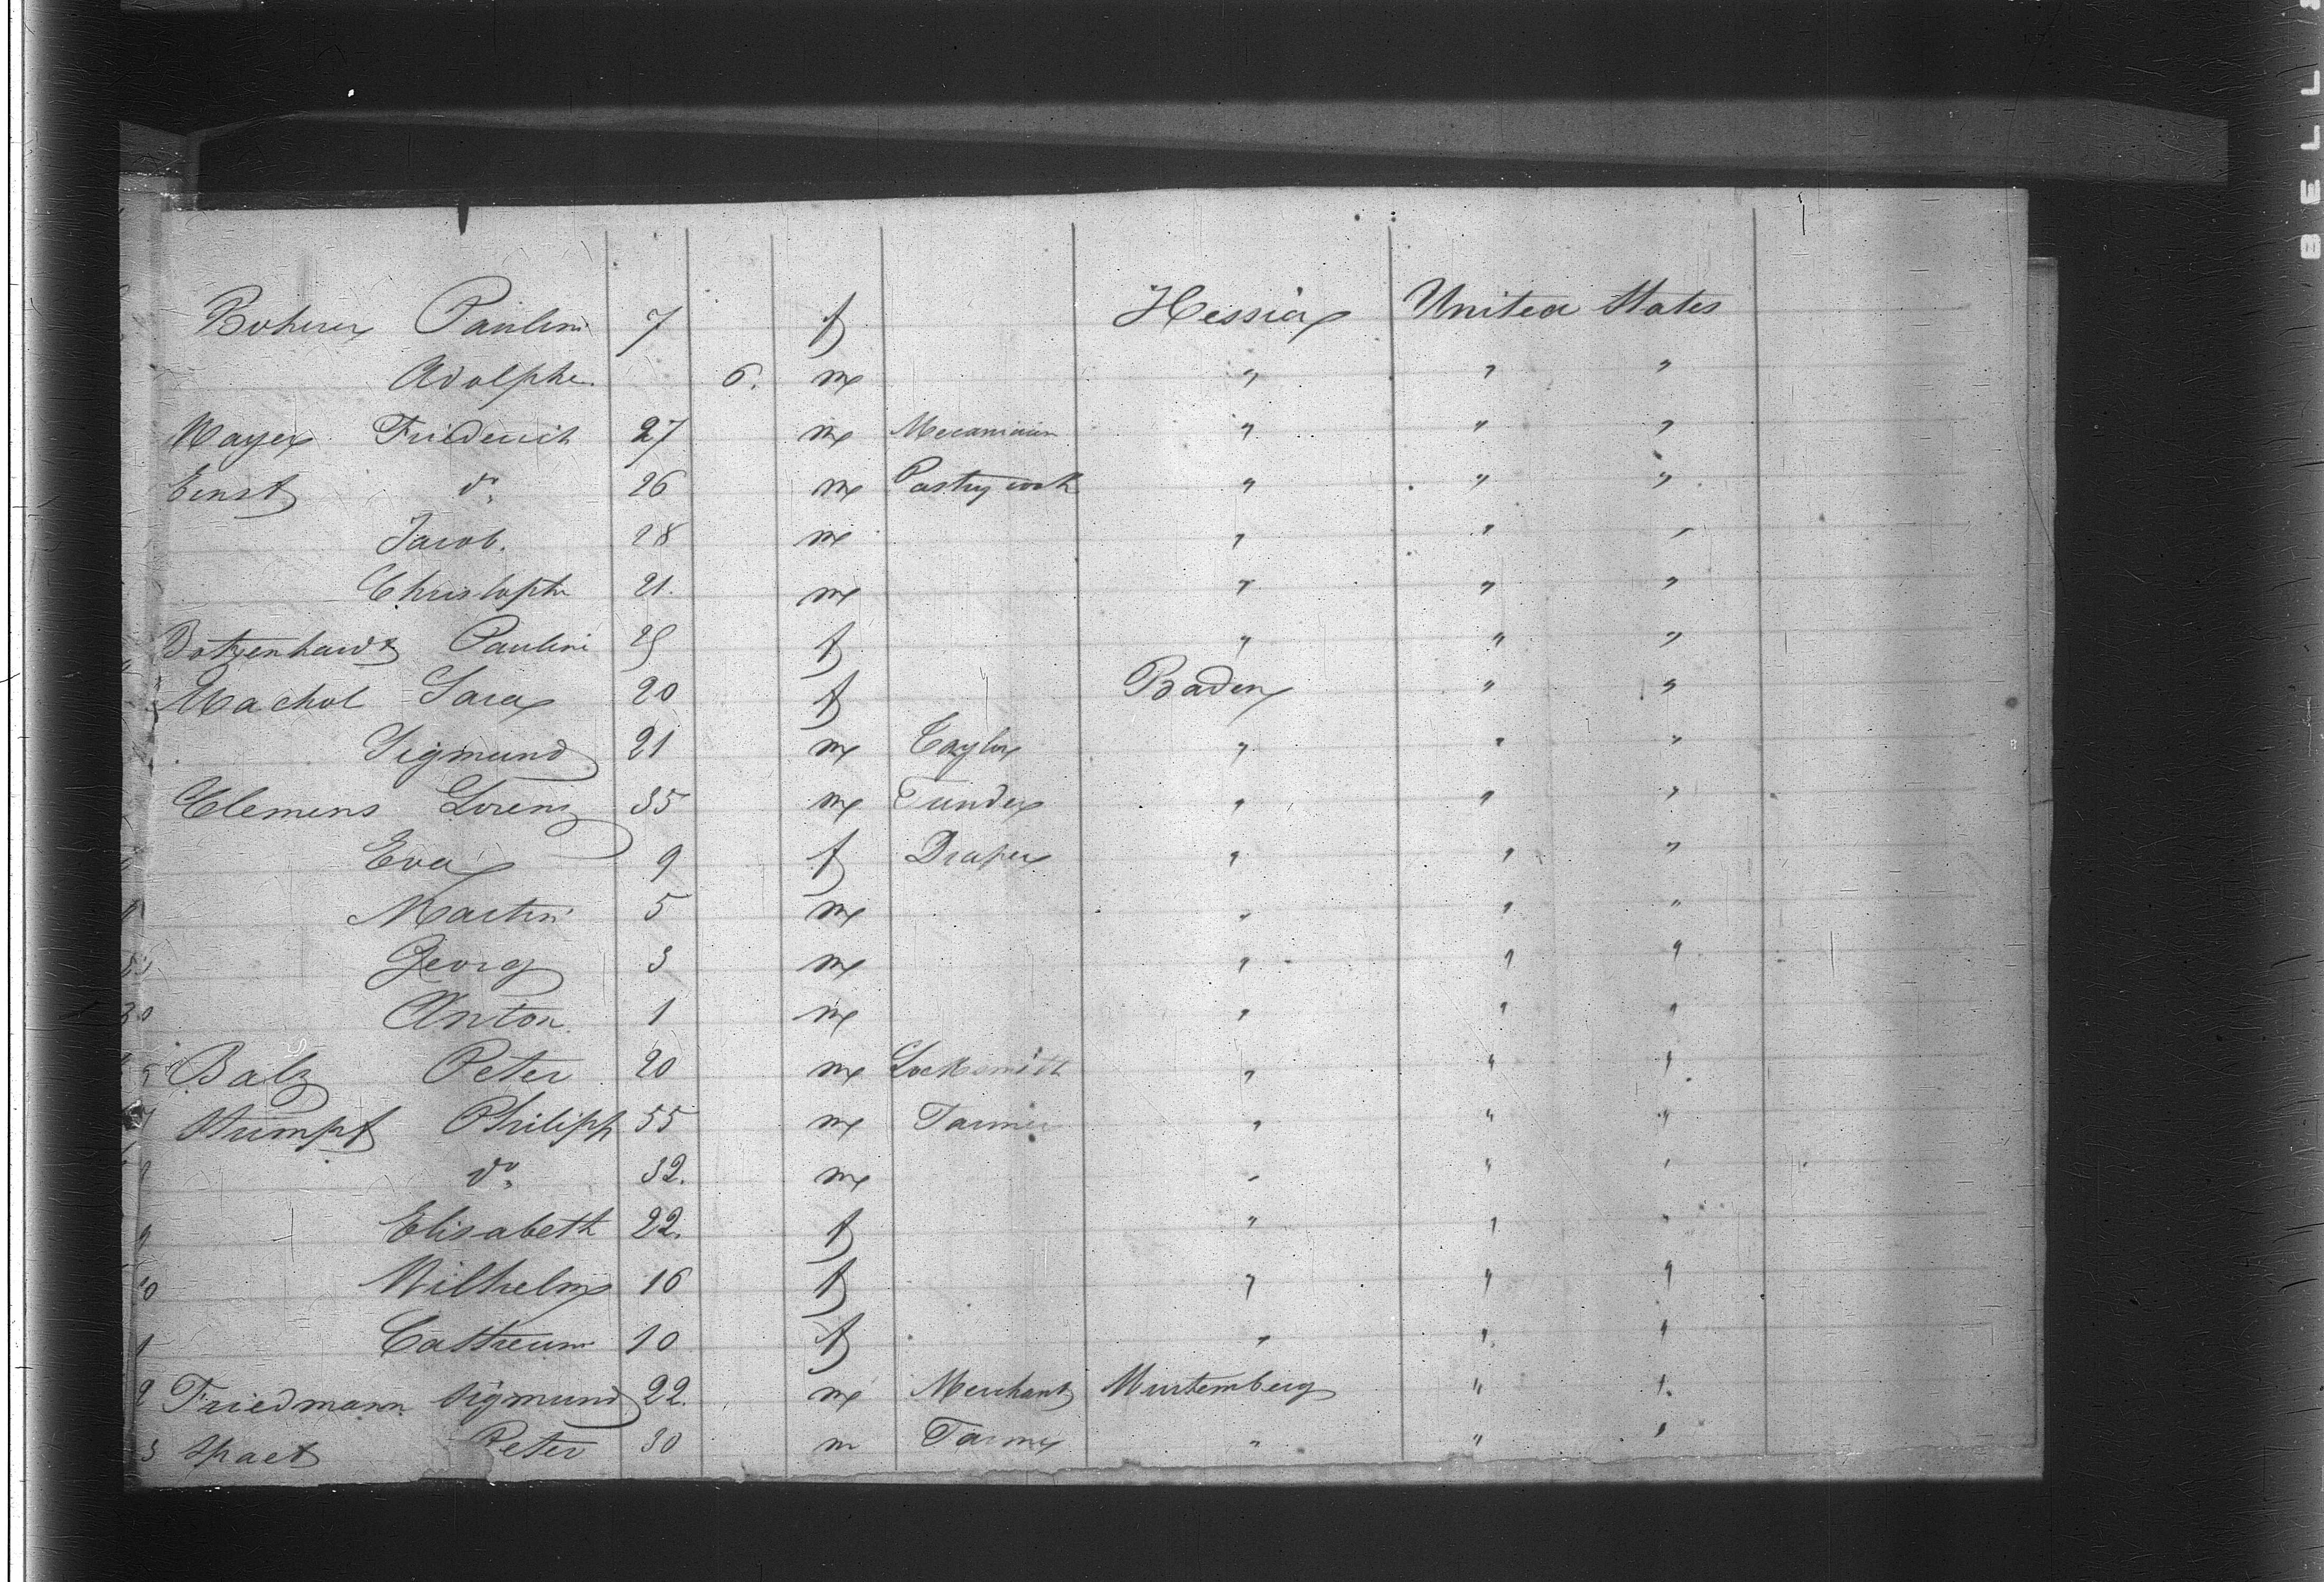 Boherer Paulin 7 f Hessia United States
Adolphe. 6. m " " "
Mayer Friederich 27 m Mecanicien " " "
Ernst do 26 m Pastry cook " " "
Jacob. 28 m " " "
Christoph 21. m " " "
Botzenhardt Paulin 25 f " " "
Machol Sara 20 f Baden " "
Sigmund 21 m Taylor " " "
Clemens Lorenz 35 m " " "
Eva 9 f Draper " " "
Martin 5 m " " "
Georg 3 m " " "
Anton 1 m " " "
Balz Peter 20 m Locksmith " " "
Stumpf Philipp 55 m Farmer " " "
do 32. m " " "
Elisabeth 22. f " " "
10 Wilhelm 16 f " " "
1 10 f " " "
2 Friedmann Sigmund 22. m Merchant Wurtemberg " "
3 Spaet Peter 30 m Farmer " " "
BELL